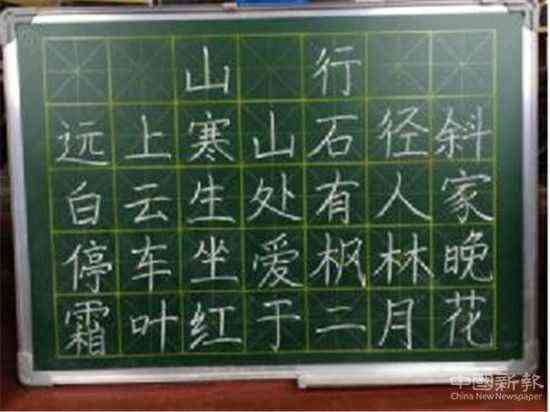 山行
远上寒山石径斜
白云生处有人家
停车坐爱枫林晚
霜叶红于二月花
中國新報
China New Newspaper